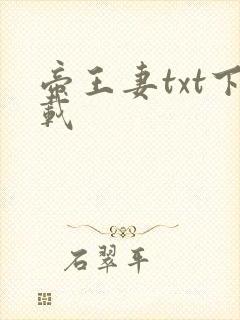 帝王妻txt下
載
石翠平